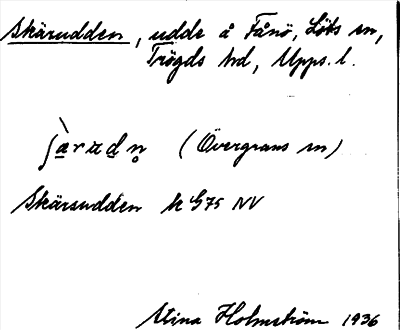 Skärudden, udde å Fånö, Löts sn,
Trögds hd, Upps. l.
ʃæ̀rudn̥ (Övergrans sn)
Skärsudden k G75 NV
Stina Holmström 1936